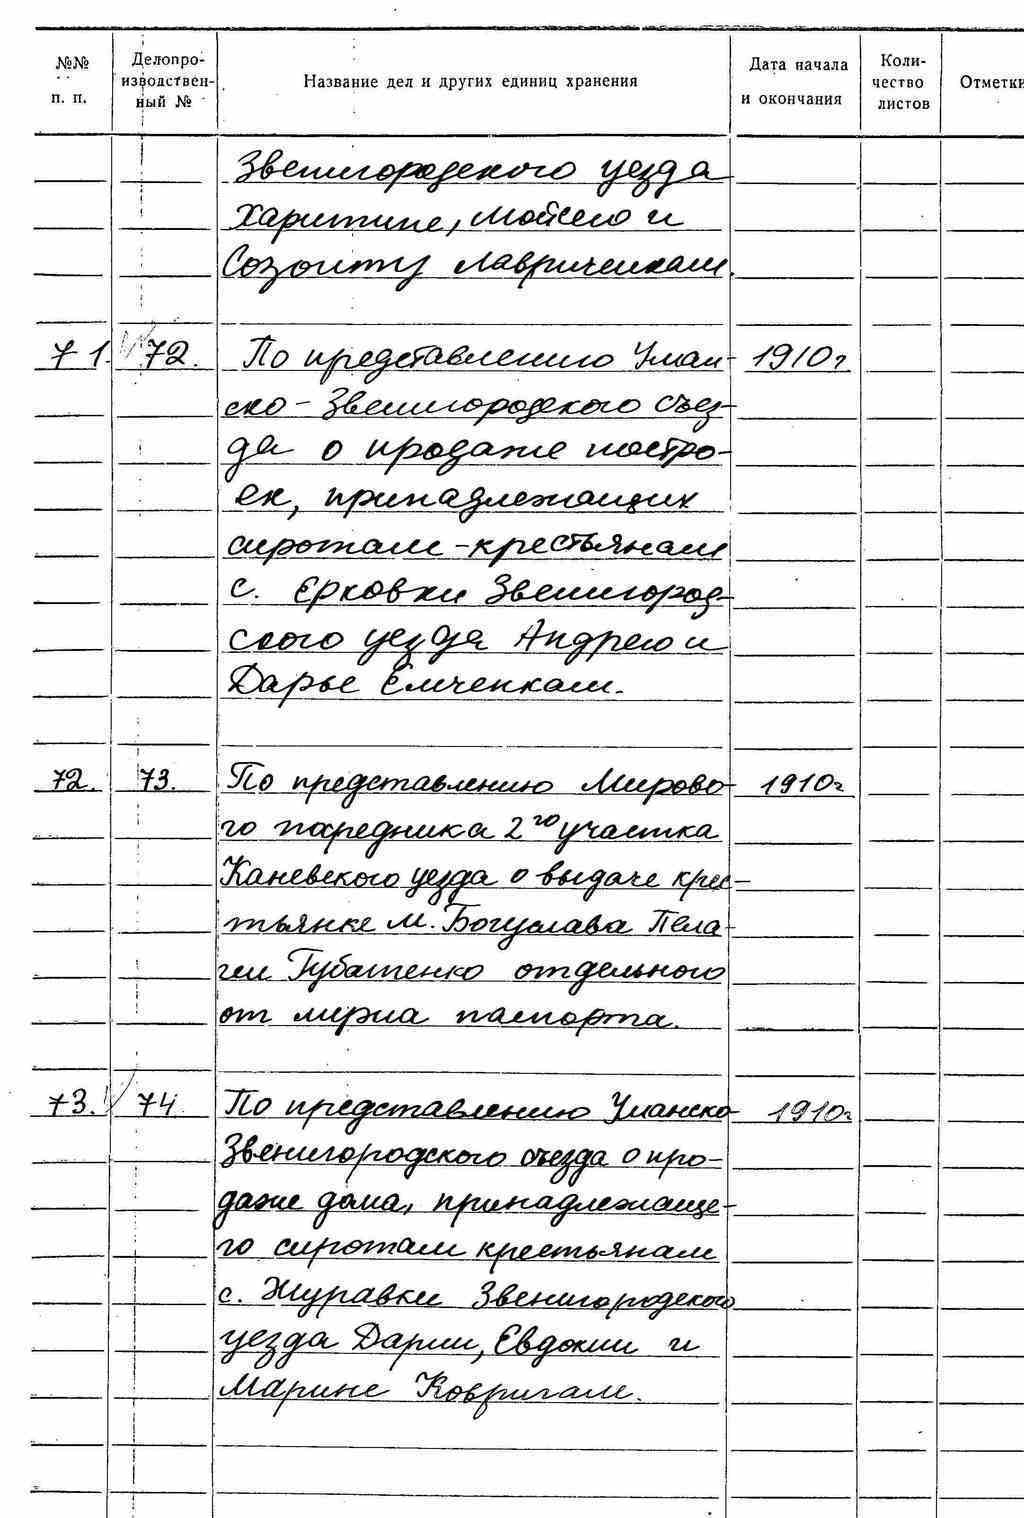 №№ п. п. Делопро-изводствен-ный № Название дел и других единиц хранения Дата начала и окончания Коли-чество листов Отметки
Звенигородского уезда
Харитине, Мойсею и
Созонту Лавриченкам.
71. 72. По представлению Уман- 1910г
ско-Звенигородского съез-
да о продаже постро-
ек, принадлежащих
сиротам-крестьянам
с. Ерковки Звенигород-
ского уезда Андрею и
Дарье Емченкам.
72. 73. По представлению Мирово- 1910г
го посредника 2го участка
Каневского уезда о выдаче крес-
тьянке м. Богуслава Пела-
геи Губатенко отдельного
от мужа паспорта.
73. 74 По представлению Уманско- 1910г
Звенигородского съезда о про-
даже дома, принадлежаще-
го сиротам крестьянам
с. Журавки Звенигородского
уезда Дарии, Евдокии и
Марине Ковригам.